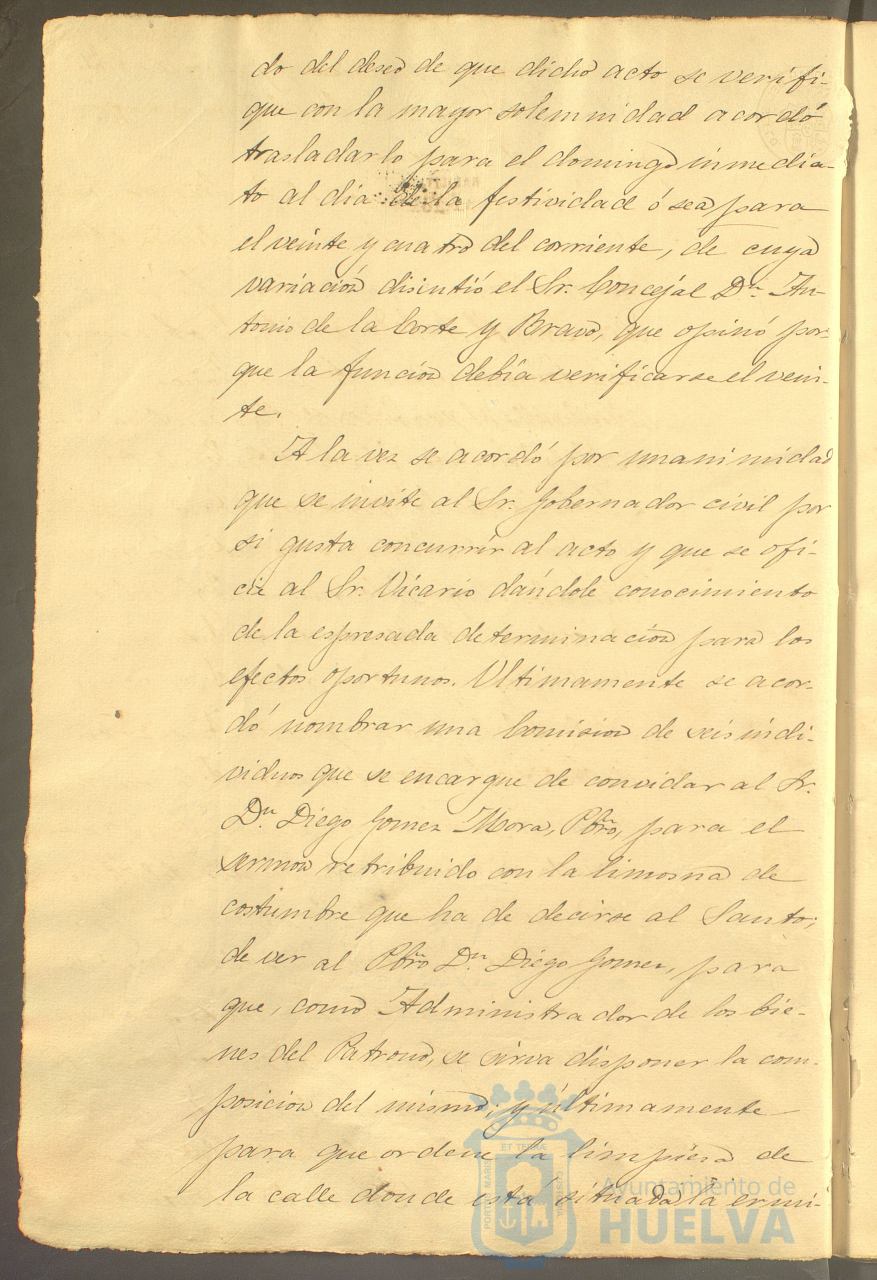 do del deseo de que dicho acto se verifi-
que con la mayor solemnidad acordó
trasladarlo para el domingo inmedia-
to al dia de la festividad ó sea para
el veinte y cuatro del corriente, de cuya
variación disintió el Sr. Concejal Dn. An-
tonio de la Corte y Bravo, que opinó por-
que la función debía verificarse el vein-
te.
A la vez se acordó por unanimidad
que se invite al Sr. Gobernador civil por
si gusta concurrir al acto y que se ofi-
cie al Sr. Vicario dándole conocimiento
de la espresada determinación para los
efectos oportunos. Ultimamente se acor-
dó nombrar una Comision de seis indi-
viduos que se encargue de convidar al Sr.
Dn. Diego Gomez Mora, Pbro, para el
sermon retribuido con la limosna de
costumbre que ha de decirse al Santo;
de ver al Pbro Dn. Diego Gomez, para
que, como Administrador de los bie-
nes del Patrono, se sirva disponer la com-
posicion del mismo; y últimamente
para que ordene la limpieza de
la calle donde está situada la ermi-
Ayuntamiento de
HUELVA